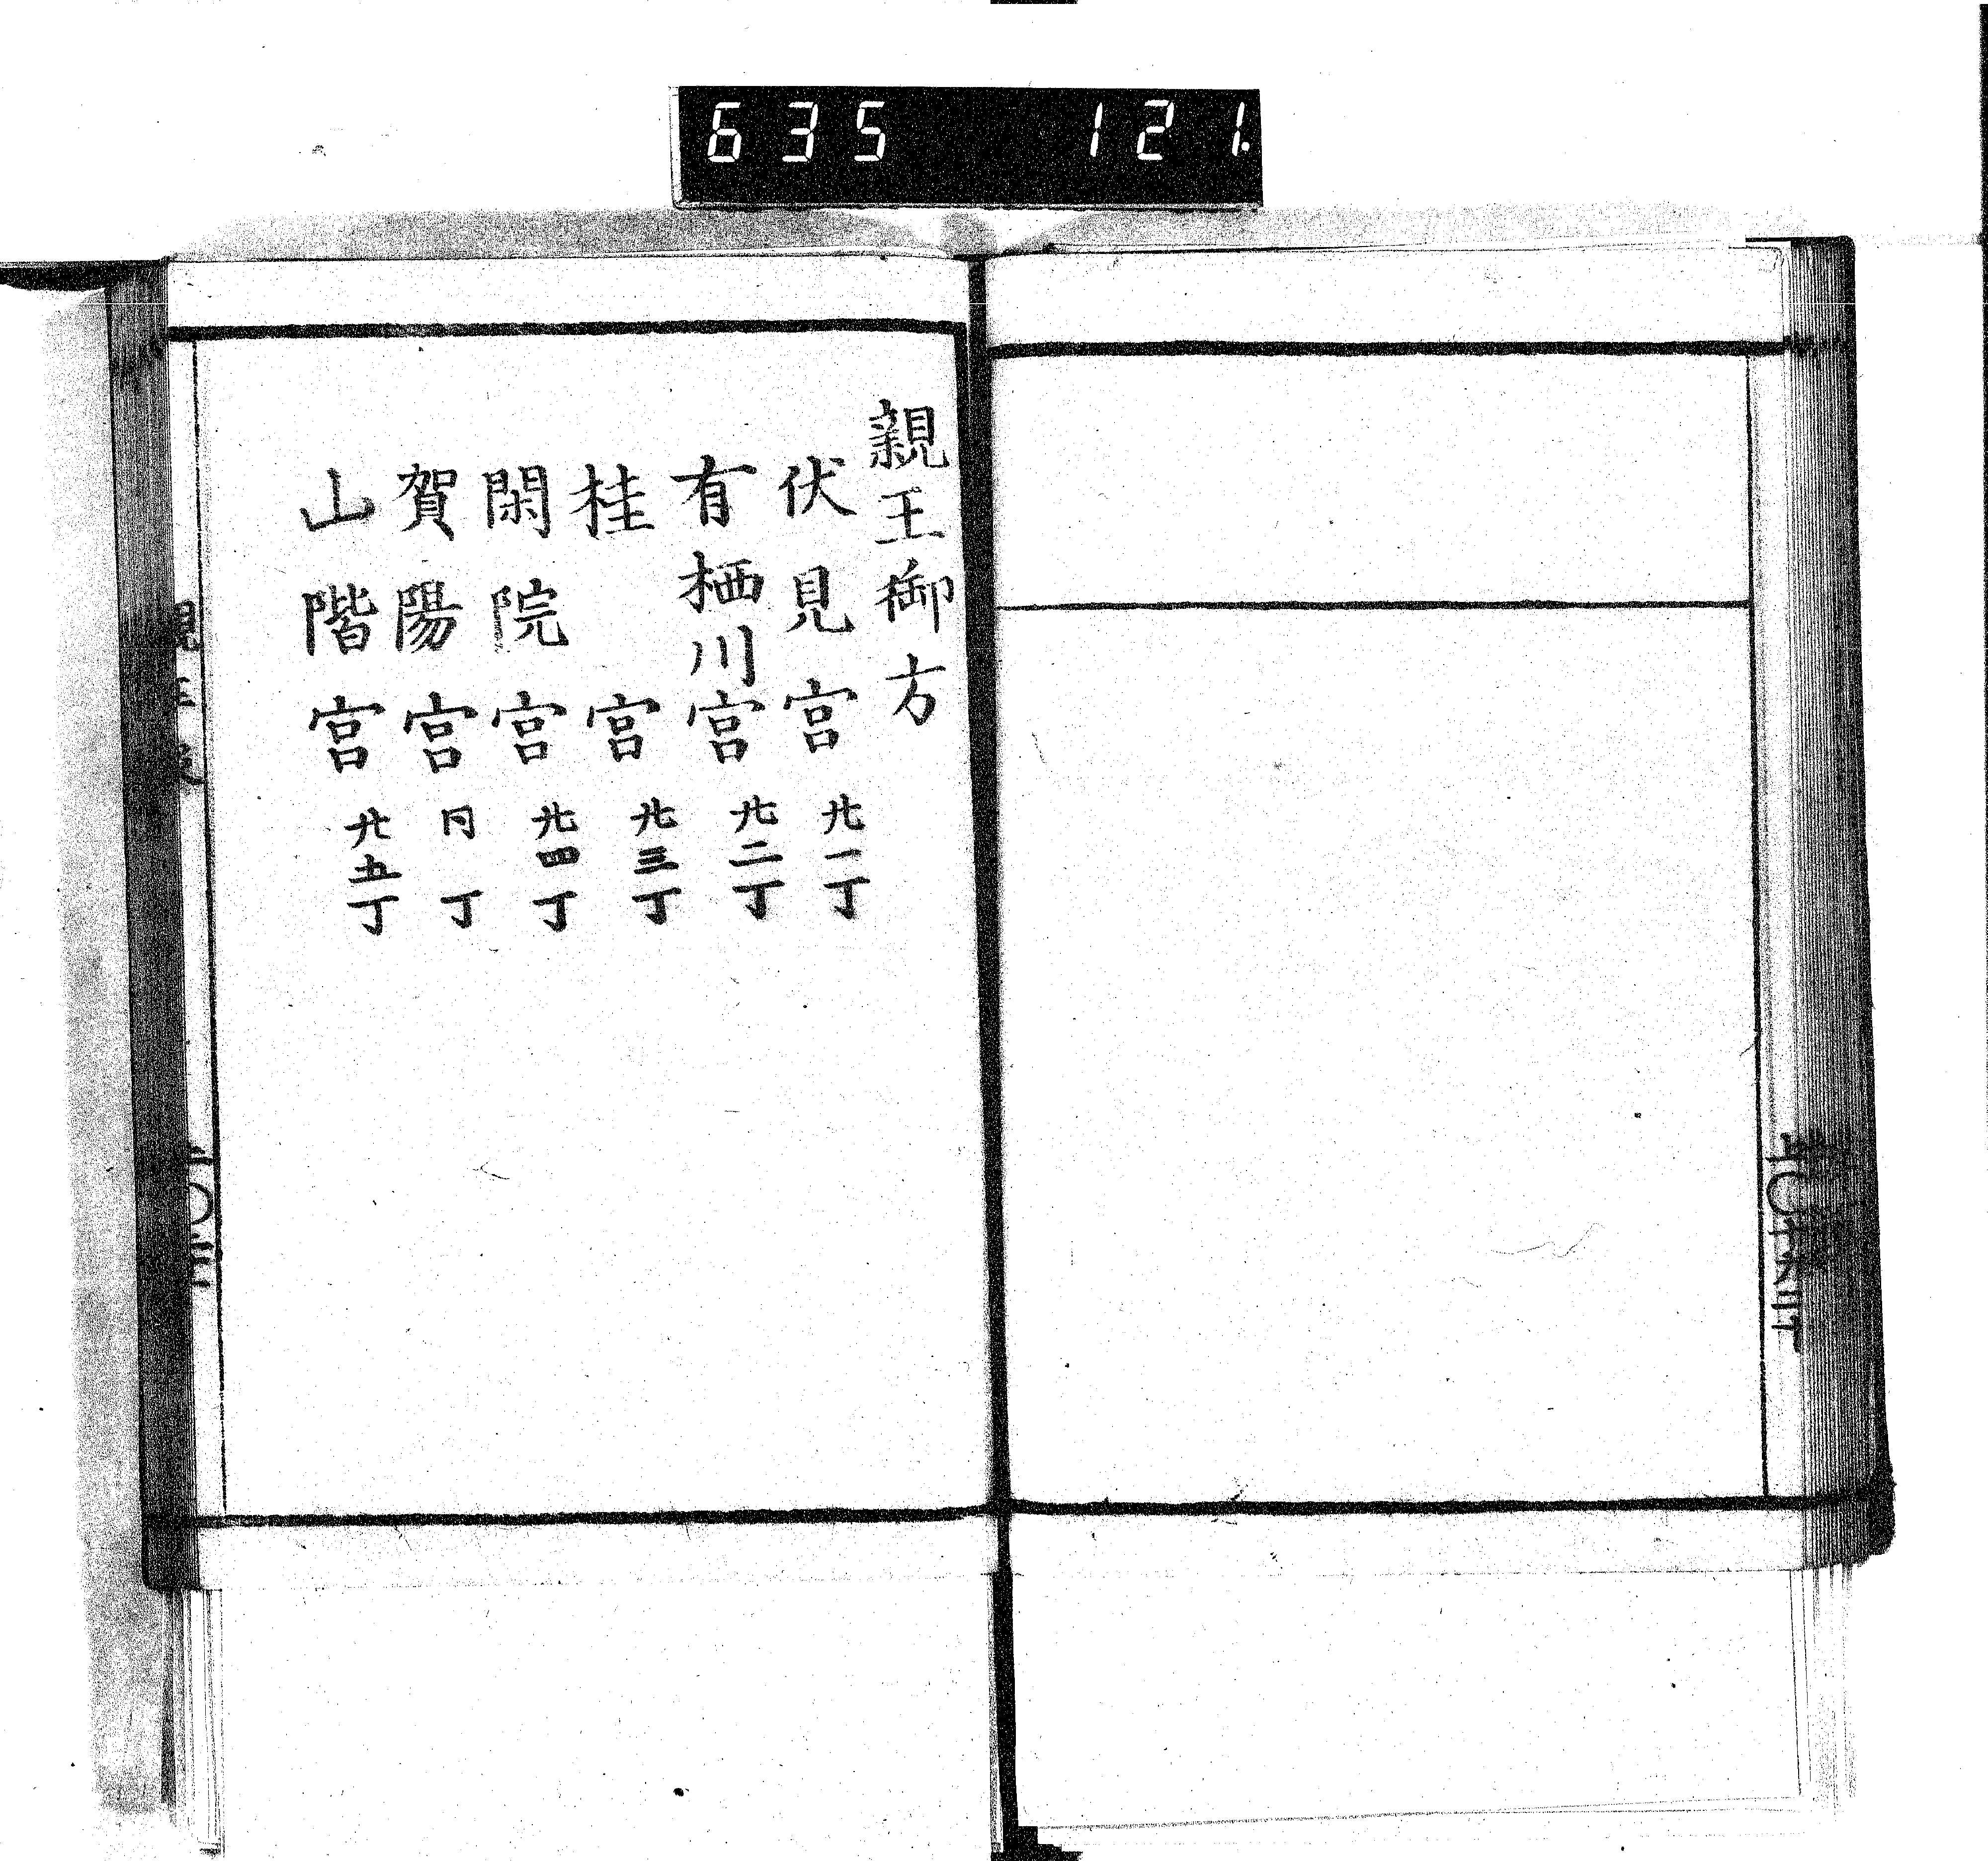 635 121.
親王御方
伏見宮 廿一丁
有栖川宮 廿二丁
桂宮 廿三丁
閑院宮 廿四丁
賀陽宮 同丁
山階宮 廿五丁